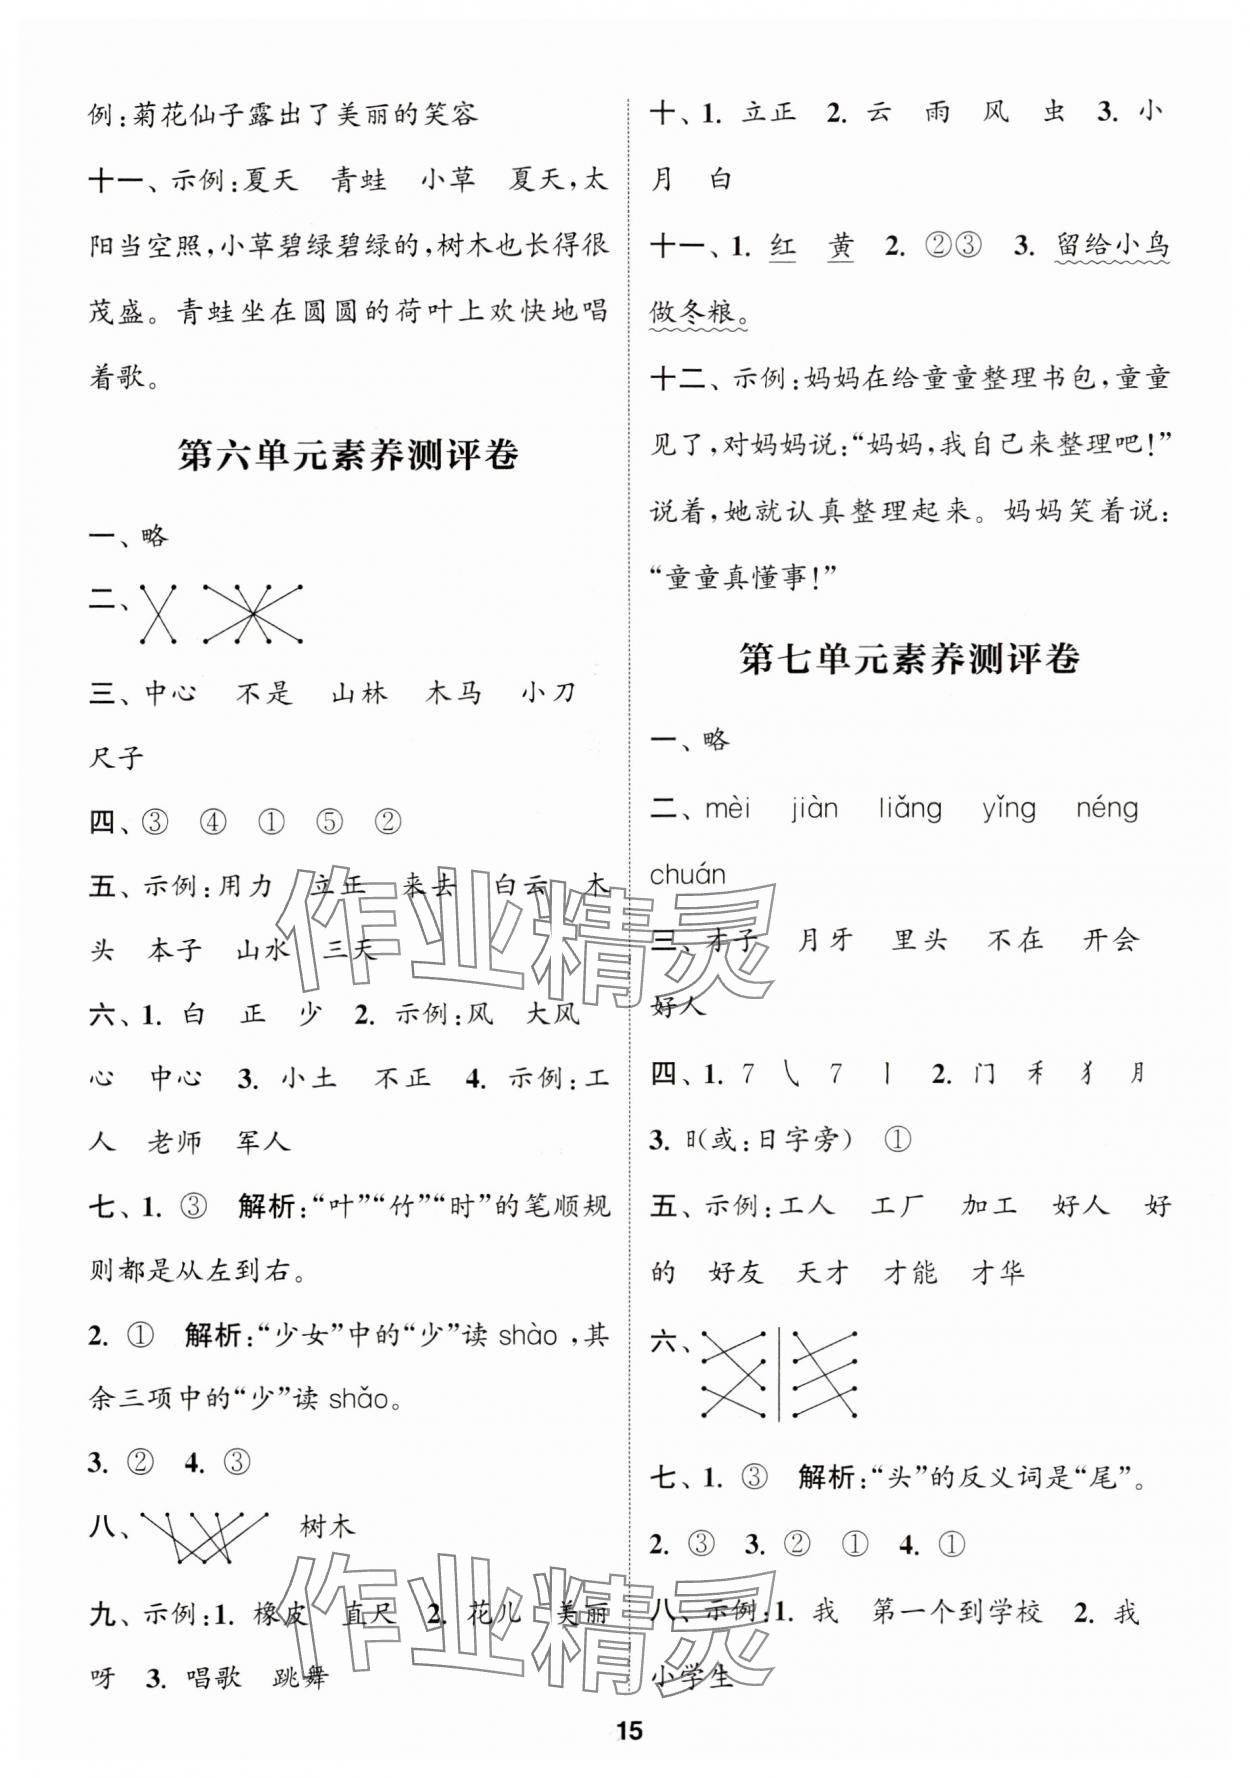 例:菊花仙子露出了美丽的笑容
十一、示例:夏天 青蛙 小草 夏天,太
阳当空照,小草碧绿碧绿的,树木也长得很
茂盛。青蛙坐在圆圆的荷叶上欢快地唱
着歌。
第六单元素养测评卷
一、略
二、
三、中心 不是 山林 木马 小刀
尺子
四、③ ④ ① ⑤ ②
五、示例:用力 立正 来去 白云 木
头 本子 山水 三天
六、1. 白 正 少 2. 示例:风 大风
心 中心 3. 小土 不正 4. 示例:工
人 老师 军人
七、1. ③ 解析:“叶”“竹”“时”的笔顺规
则都是从左到右。
2. ① 解析:“少女”中的“少”读 shào,其
余三项中的“少”读 shǎo。
3. ② 4. ③
八、 树木
九、示例:1. 橡皮 直尺 2. 花儿 美丽
呀 3. 唱歌 跳舞
十、1. 立正 2. 云 雨 风 虫 3. 小
月 白
十一、1. 红 黄 2. ②③ 3. 留给小鸟
做冬粮。
十二、示例:妈妈在给童童整理书包,童童
见了,对妈妈说:“妈妈,我自己来整理吧!”
说着,她就认真整理起来。妈妈笑着说:
“童童真懂事!”
第七单元素养测评卷
一、略
二、mèi jiàn liǎng yǐng néng
chuán
三、才子 月牙 里头 不在 开会
好人
四、1. ㇇ ㇏ ㇇ 丨 2. 门 禾 犭 月
3. 日(或:日字旁) ①
五、示例:工人 工厂 加工 好人 好
的 好友 天才 才能 才华
六、
七、1. ③ 解析:“头”的反义词是“尾”。
2. ③ 3. ② ① 4. ①
八、示例:1. 我 第一个到学校 2. 我
小学生
15
作业精灵
作业精灵